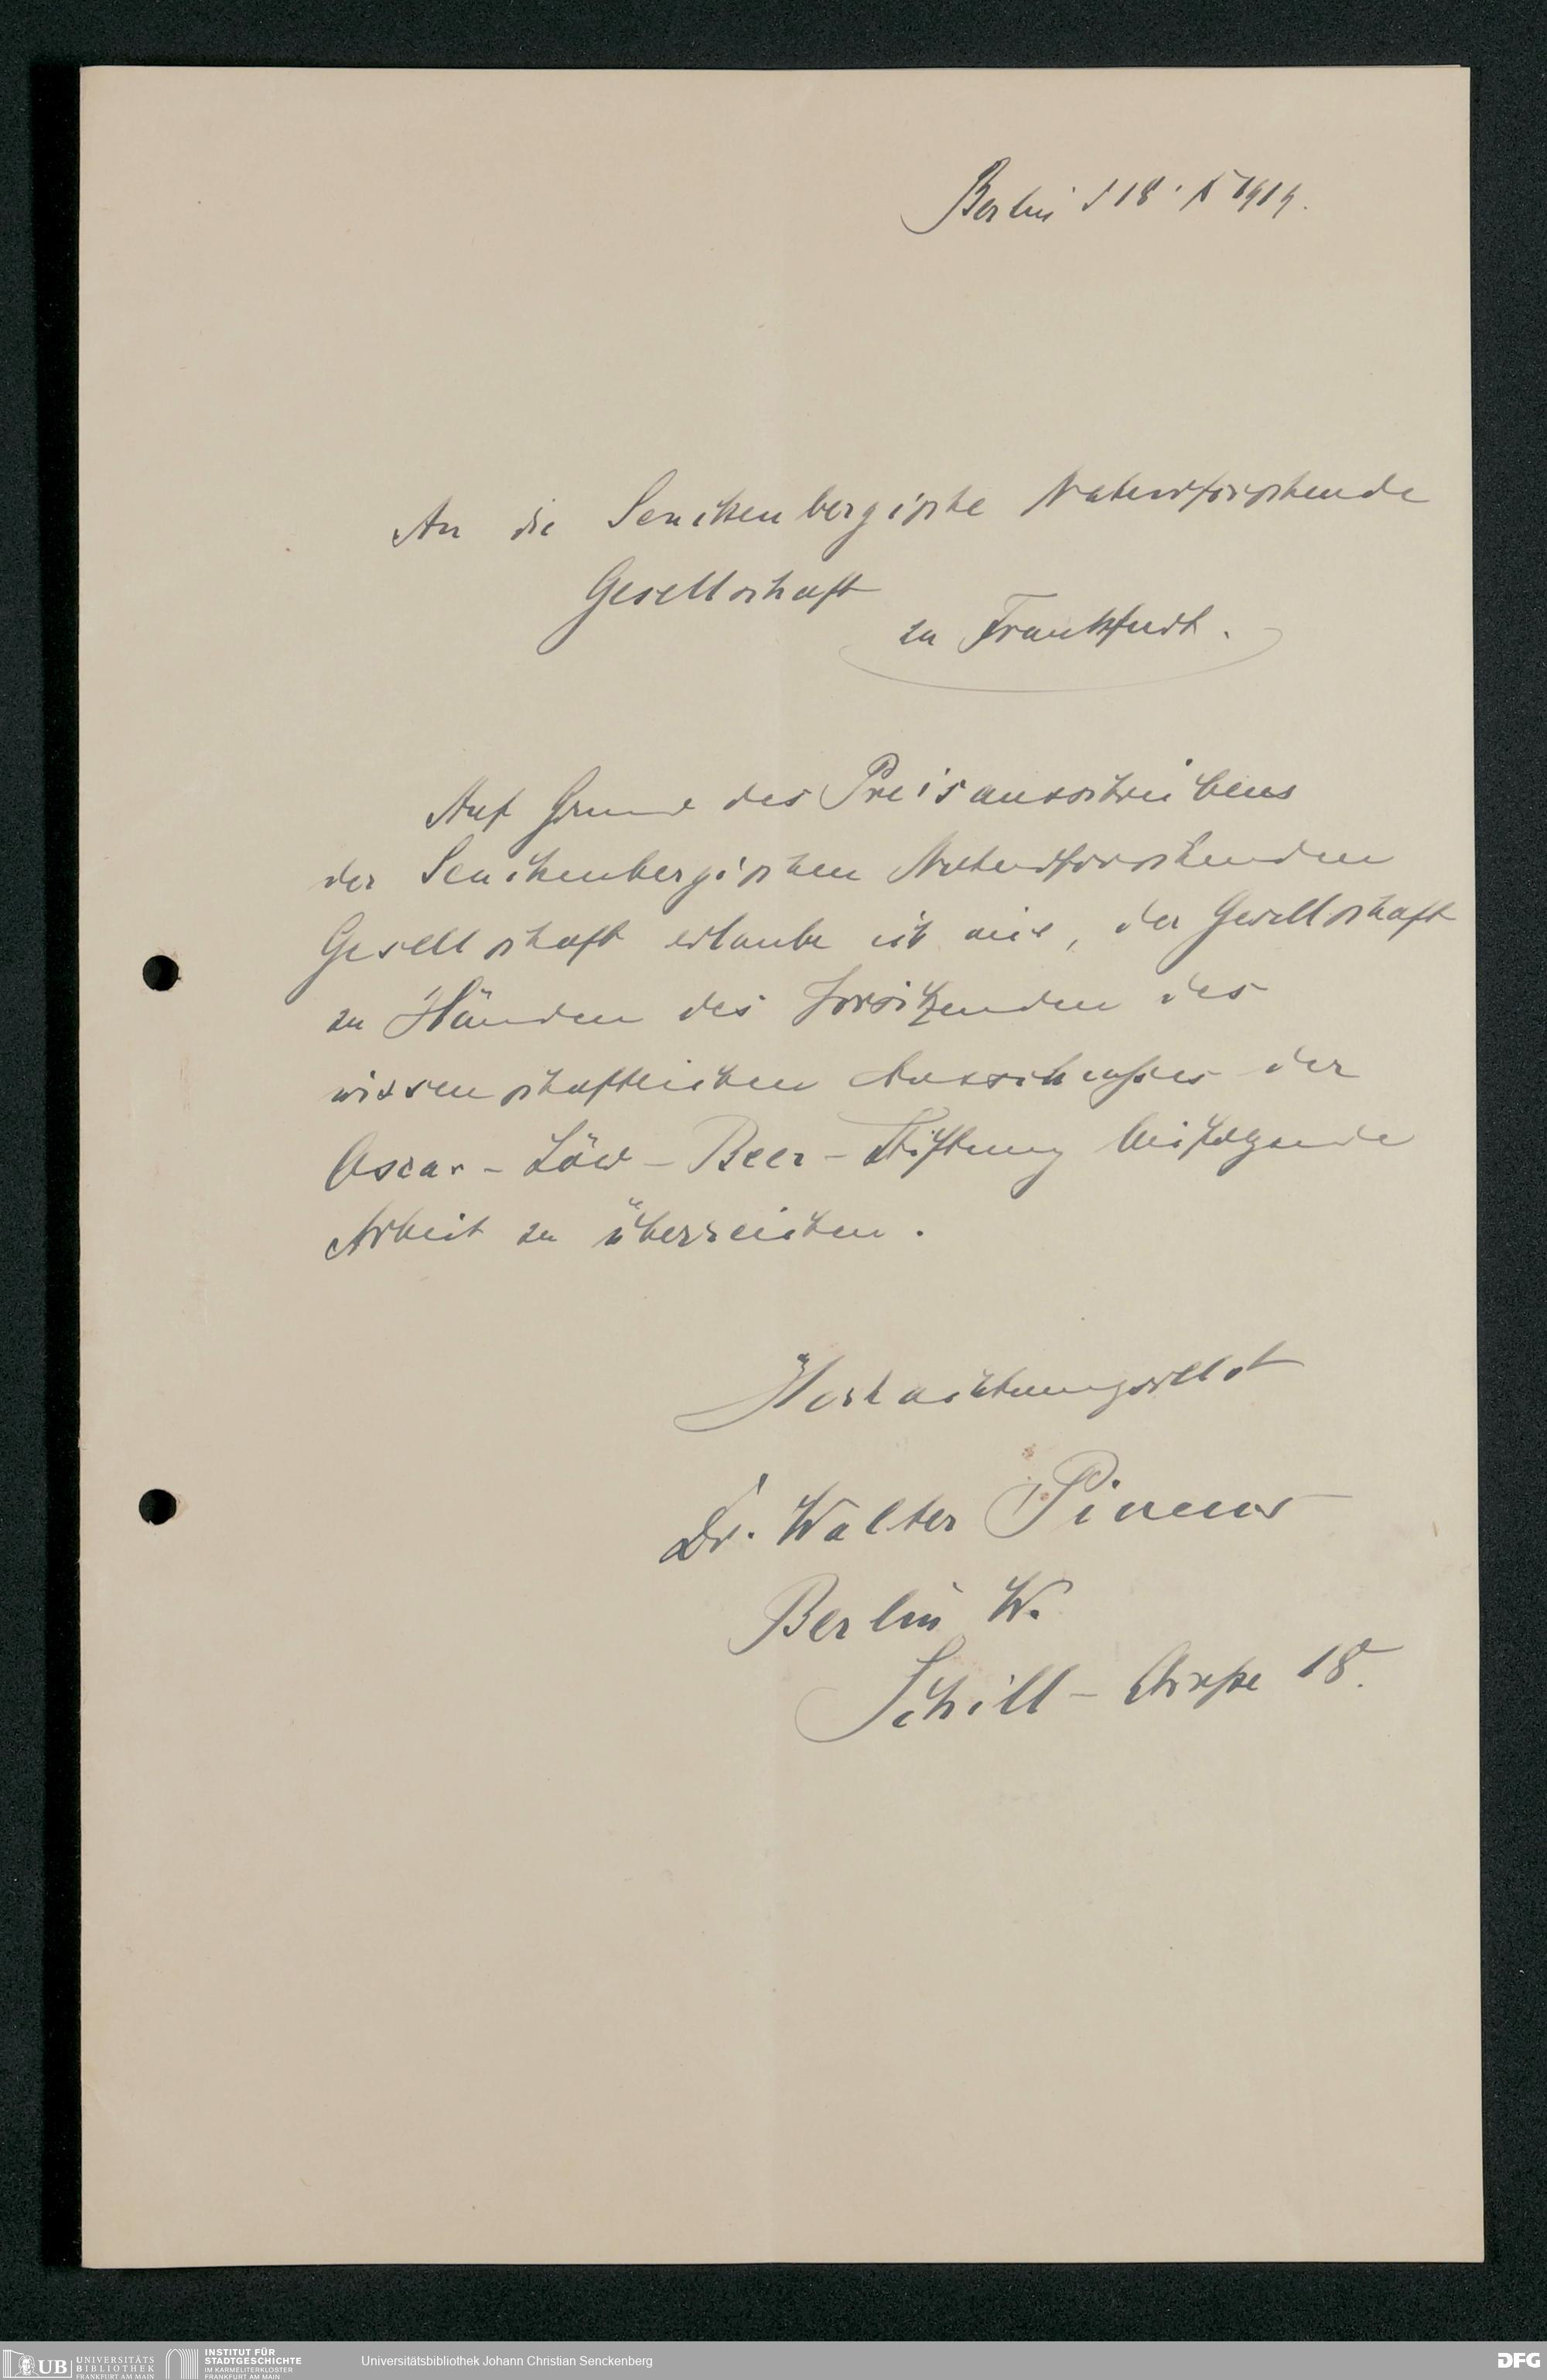 Berlin d 18. X 1919.
An die Senckenbergische Naturforschende
Gesellschaft
zu Frankfurt.
Auf Grund des Preisausschreibens
der Senckenbergischen Naturforschenden
Gesellschaft erlaube ich mir, der Gesellschaft
zu Händen des Vorsitzenden des
wissenschaftlichen Ausschusses der
Oscar-Löw-Beer-Stiftung beifolgende
Arbeit zu überreichen.
Hochachtungsvollst
Dr. Walter Pincus
Berlin W.
Schill-Strasse 18.
UB UNIVERSITÄTS
BIBLIOTHEK
FRANKFURT AM MAIN
INSTITUT FÜR
STADTGESCHICHTE
IM KARMELITERKLOSTER
FRANKFURT AM MAIN
Universitätsbibliothek Johann Christian Senckenberg
DFG